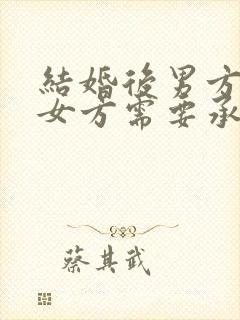 結婚後男方
女方需要承
蔡其武